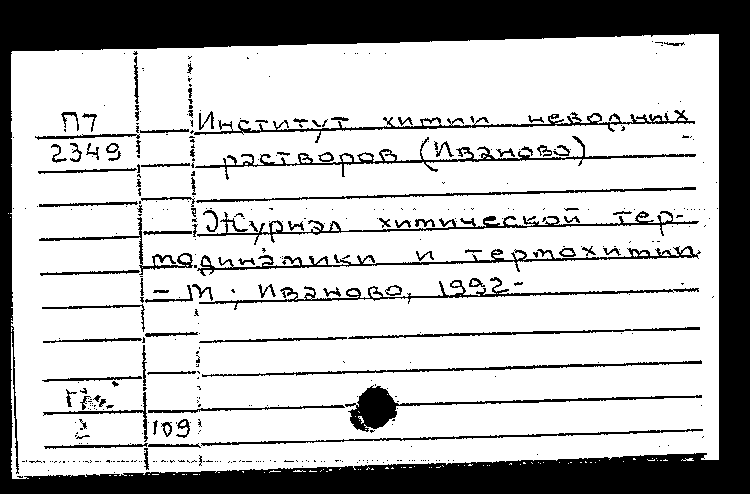 П7
2349
Институт химии неводных
растворов (Иваново)
Журнал химической тер-
модинамики и термохимии
- М.; Иваново, 1992-
2
109